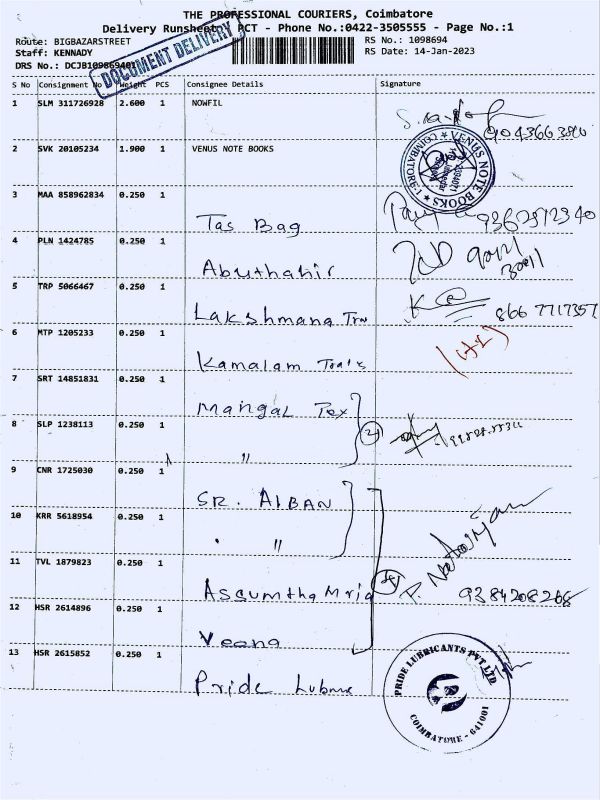 THE PROFESSIONAL COURIERS, Coimbatore
Delivery Runsheet PCT - Phone No.:0422-3505555 - Page No.:1
Route: BIGBAZARSTREET
RS No.: 1098694
Staff: KENNADY
RS Date: 14-Jan-2023
DRS No.: DCJB109869401
DOCUMENT DELIVERY
S No Consignment No Weight PCS Consignee Details Signature
1 SLM 311726928 2.600 1 NOWFIL
9043663800
2 SVK 20105234 1.900 1 VENUS NOTE BOOKS
VENUS NOTE BOOKS COIMBATORE-1
3 MAA 858962834 0.250 1
Tas Bag 9362572340
4 PLN 1424785 0.250 1
Abuthahir
5 TRP 5066467 0.250 1
Lakshmana 866 7717357
6 MTP 1205233 0.250 1
Kamalam
7 SRT 14851831 0.250 1
Mangal Tex
8 SLP 1238113 0.250 1
"
9 CNR 1725030 0.250 1
SR. ALBAN
10 KRR 5618954 0.250 1
"
11 TVL 1879823 0.250 1
9384208268
12 HSR 2614896 0.250 1
Veena
13 HSR 2615852 0.250 1
Pride
PRIDE LUBRICANTS PVT LTD
COIMBATORE - 641001